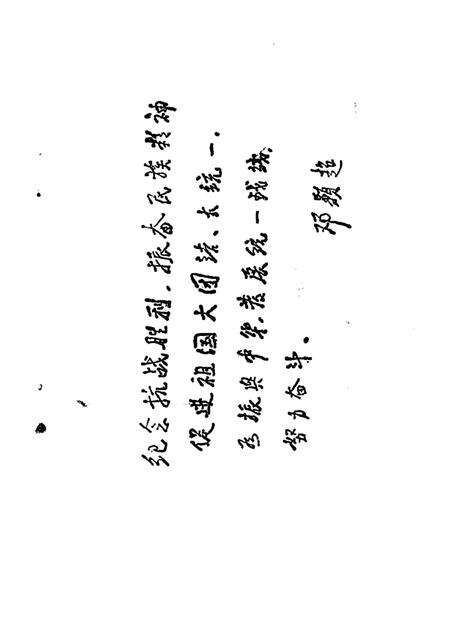 纪念抗战胜利，振奋民族精神
促进祖国大团结、大统一。
为振兴中华，发展统一战线，
努力奋斗。
邓颖超